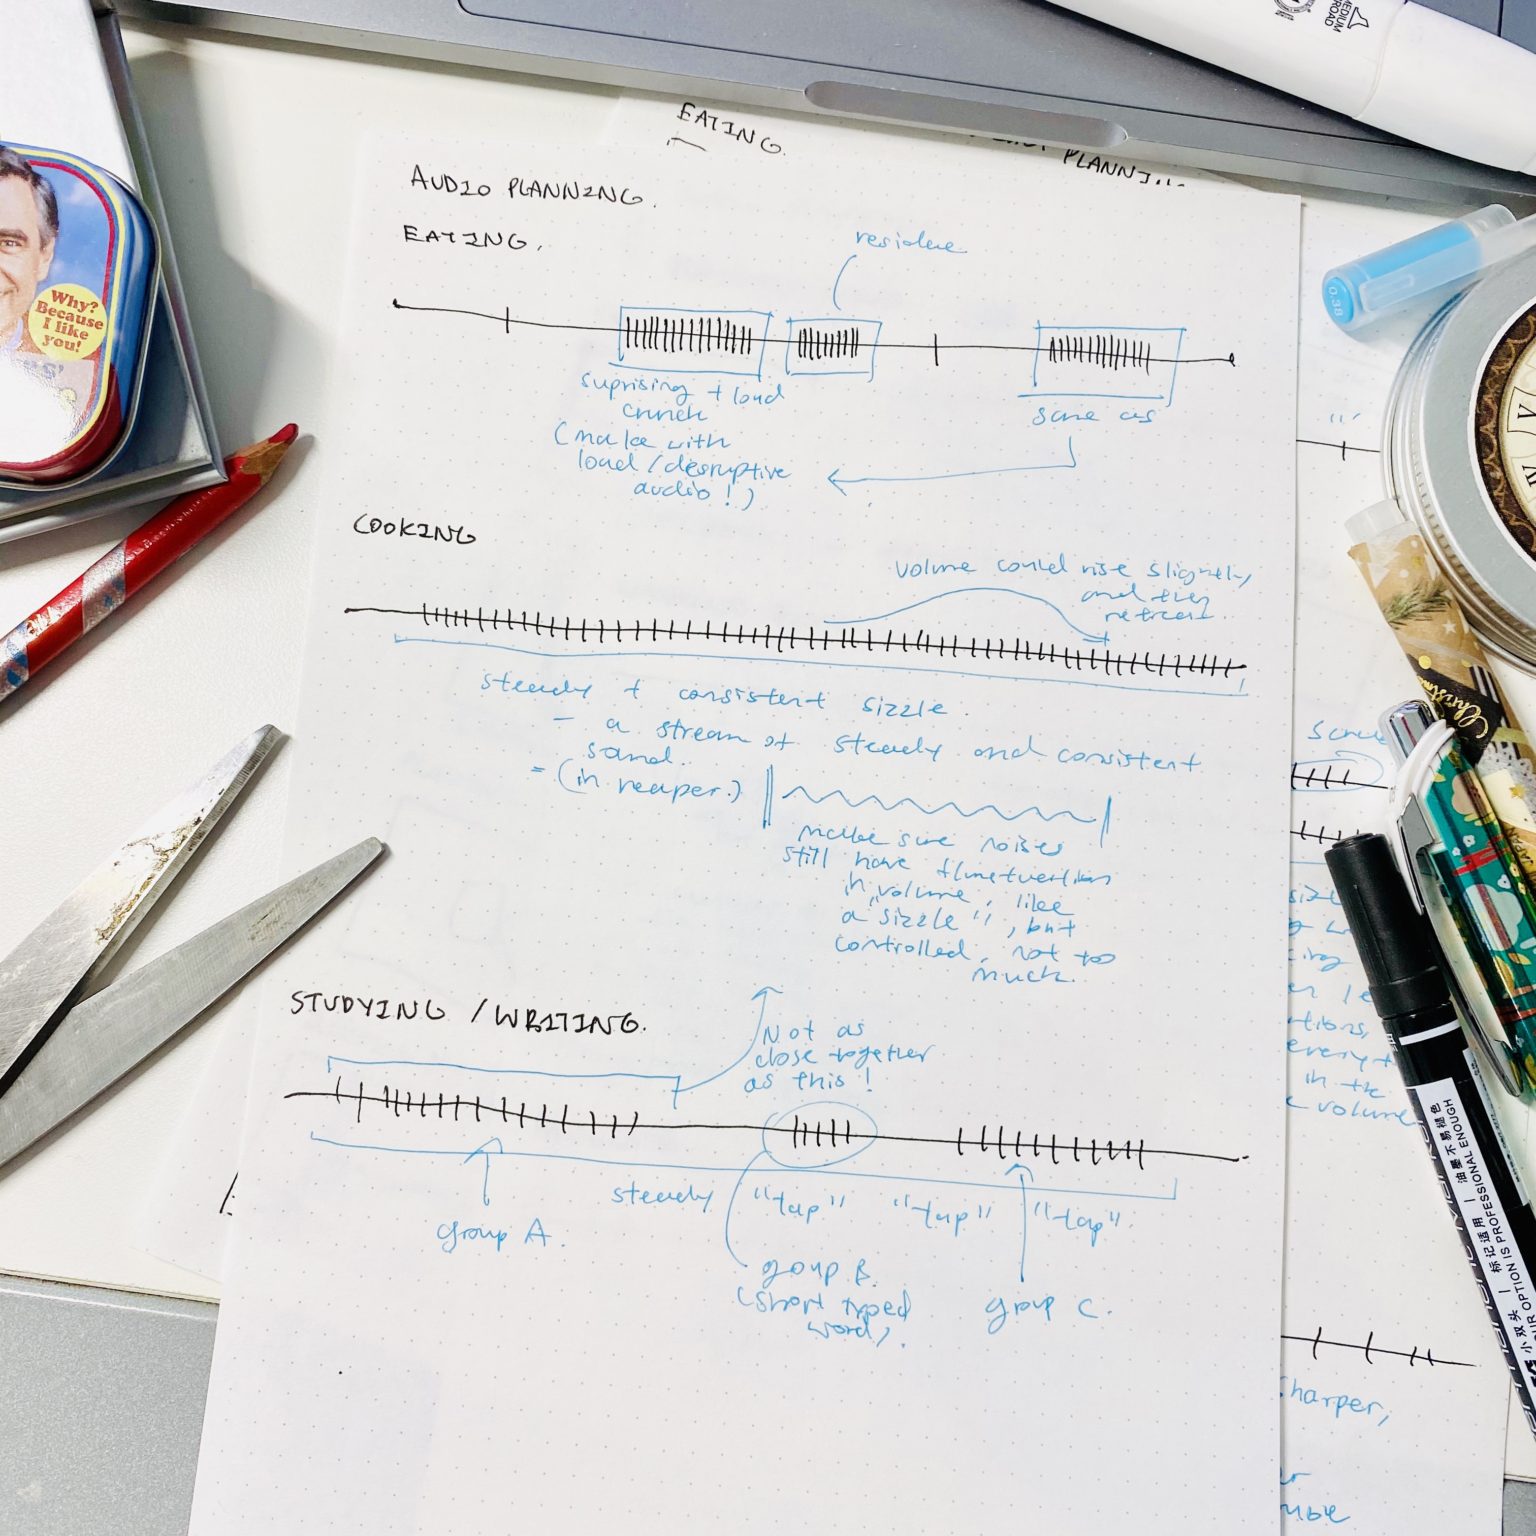 MEDIUM
BROAD
EATING.
PLANNI
AUDIO PLANNING.
EATING.
residue
suprising + loud
crunch
(make with
loud/desruptive
audio!)
same as
Why?
Because
I like
you!
0.38
COOKING
volume could rise slightly,
and then
retreat.
steady + consistent sizzle.
- a stream of steady and consistent
sand.
= (in reaper.)
make sure noises
still have
in volume, like
a sizzle", but
controlled, not too
much.
Christmas
STUDYING / WRITING.
Not as
close together
as this!
steady "tap" "tap" "tap".
group A.
group B.
(short typed
word).
group C.
in the
volume
harper,
油墨不易褪色
PROFESSIONAL ENOUGH
小双头 | 标记适用
OUR OPTION IS